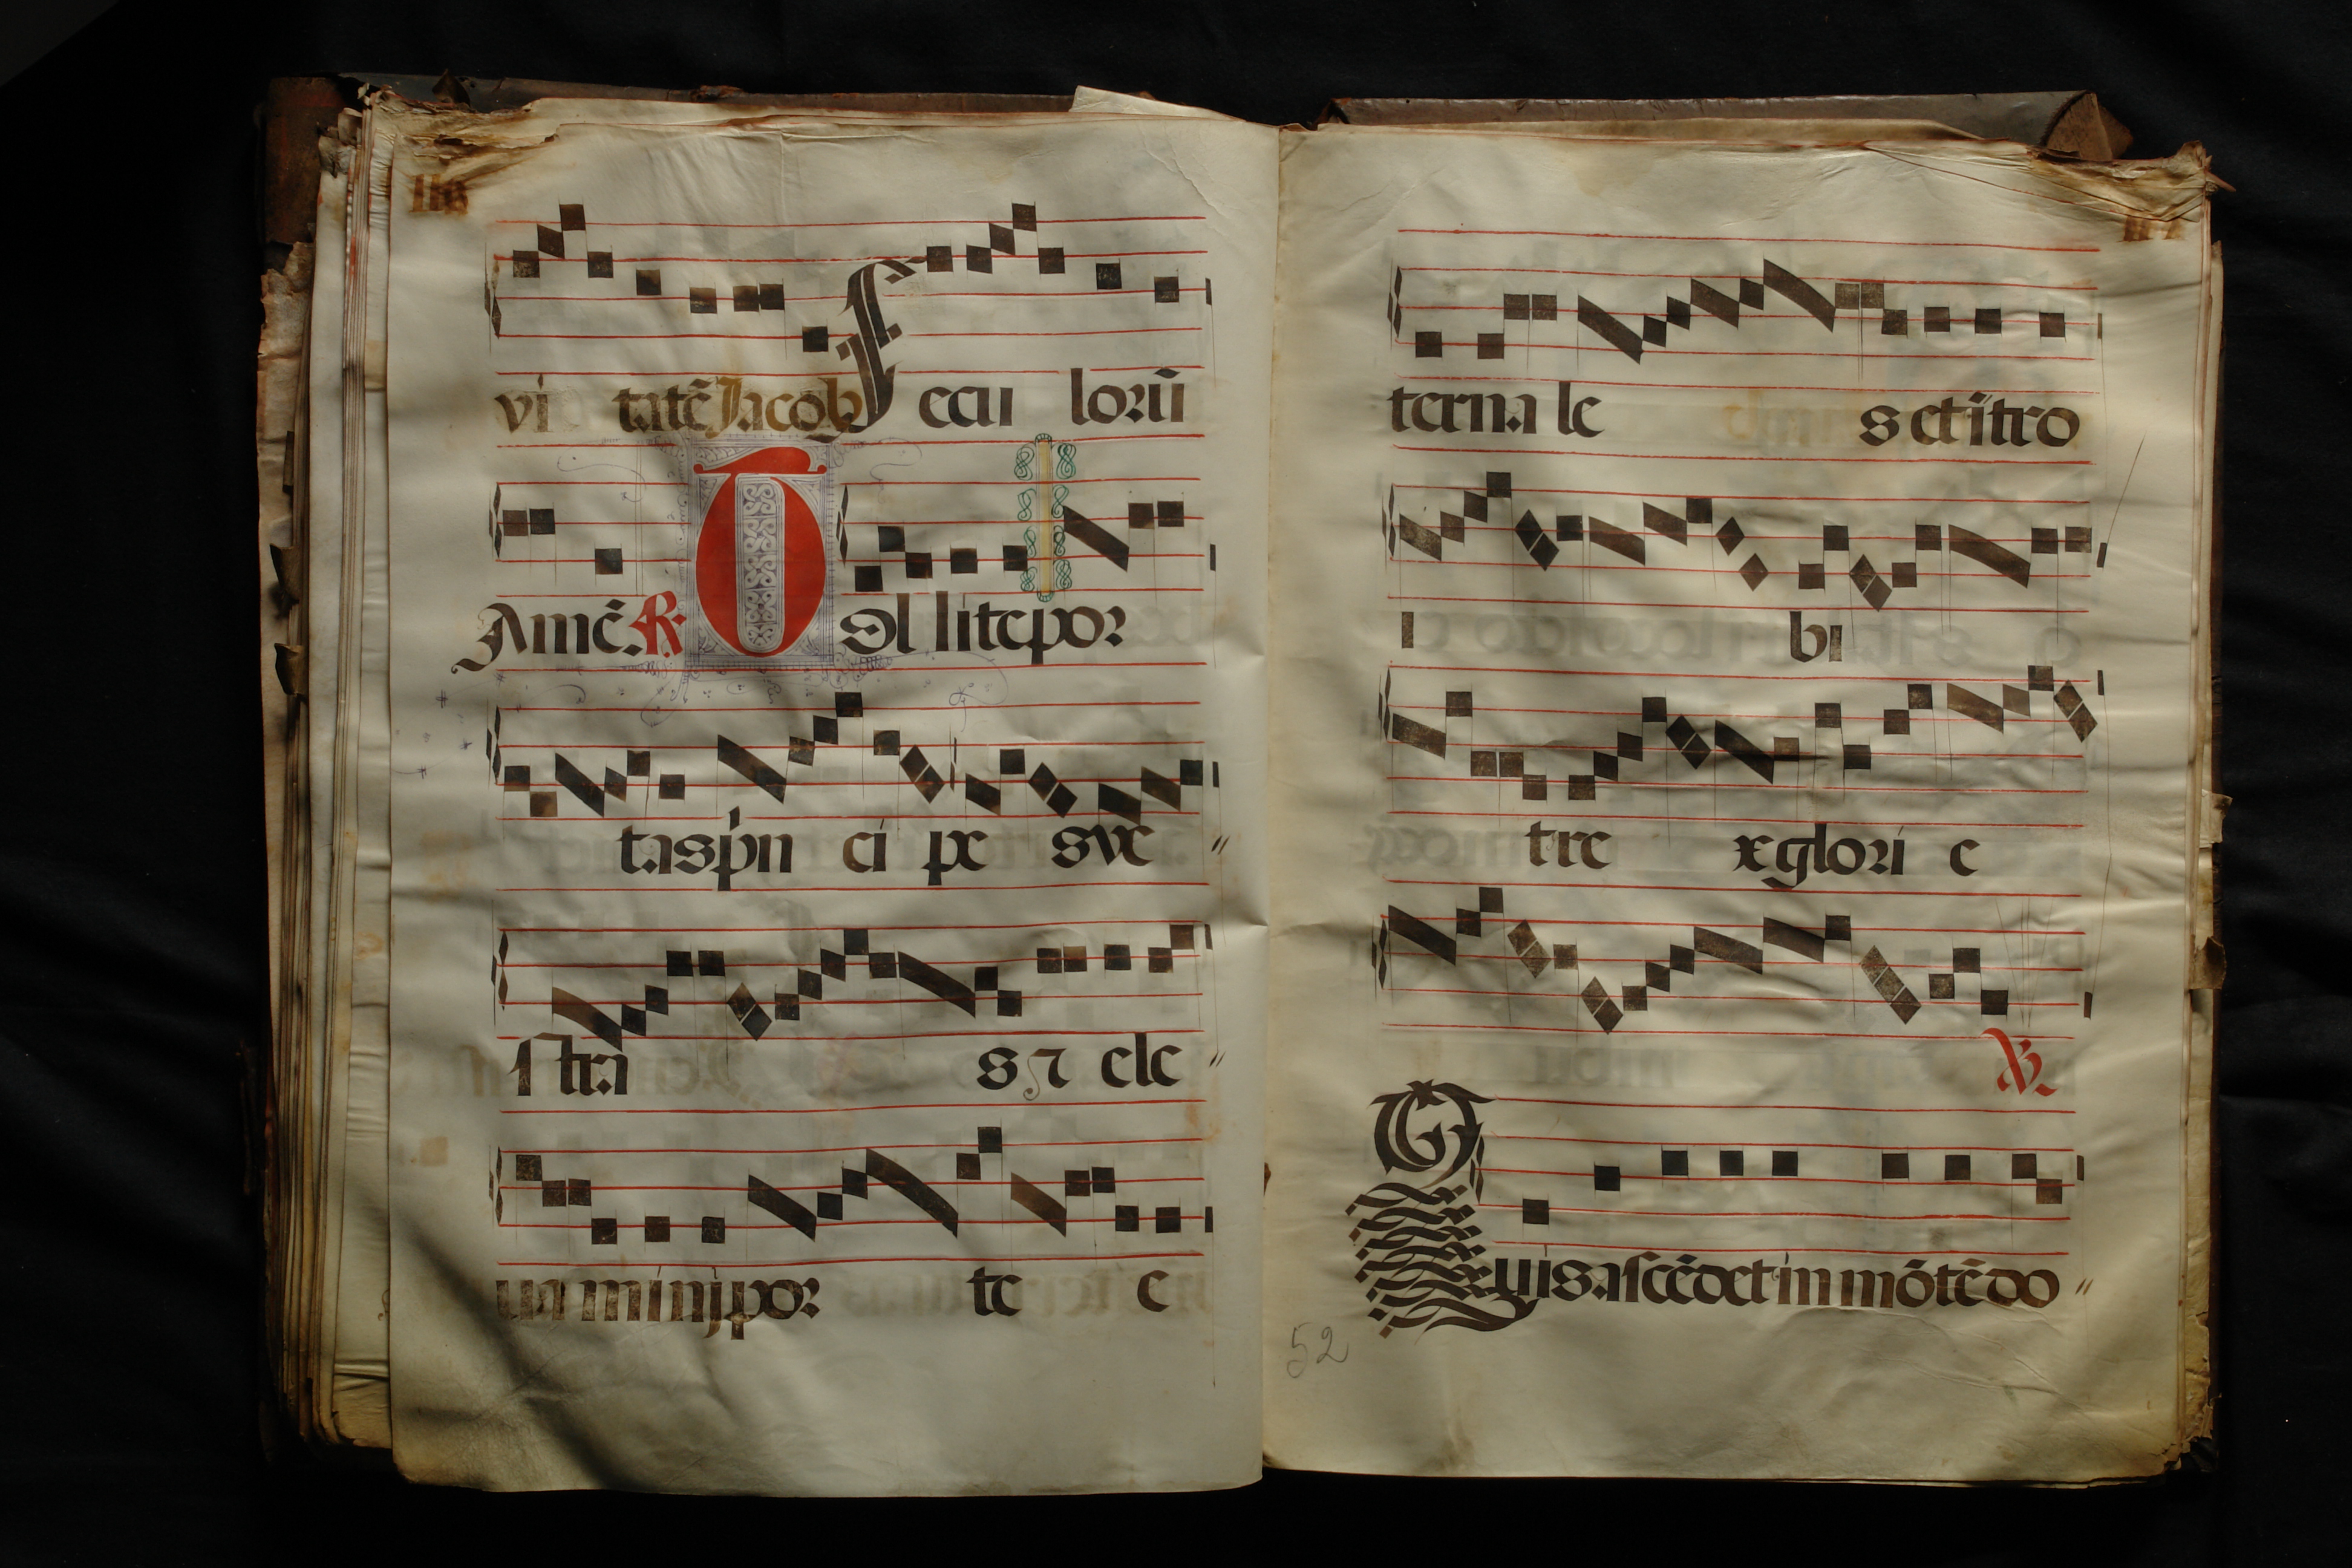 vi tatē Jacob Secu lorū
Amē. R Tol lite por
tas prin ci pe sve
stra s ⁊ ele
va minj por te e
terna le s et ītro
i bi
t re x glori e
V
Quis ascēdet in mōtē do
52